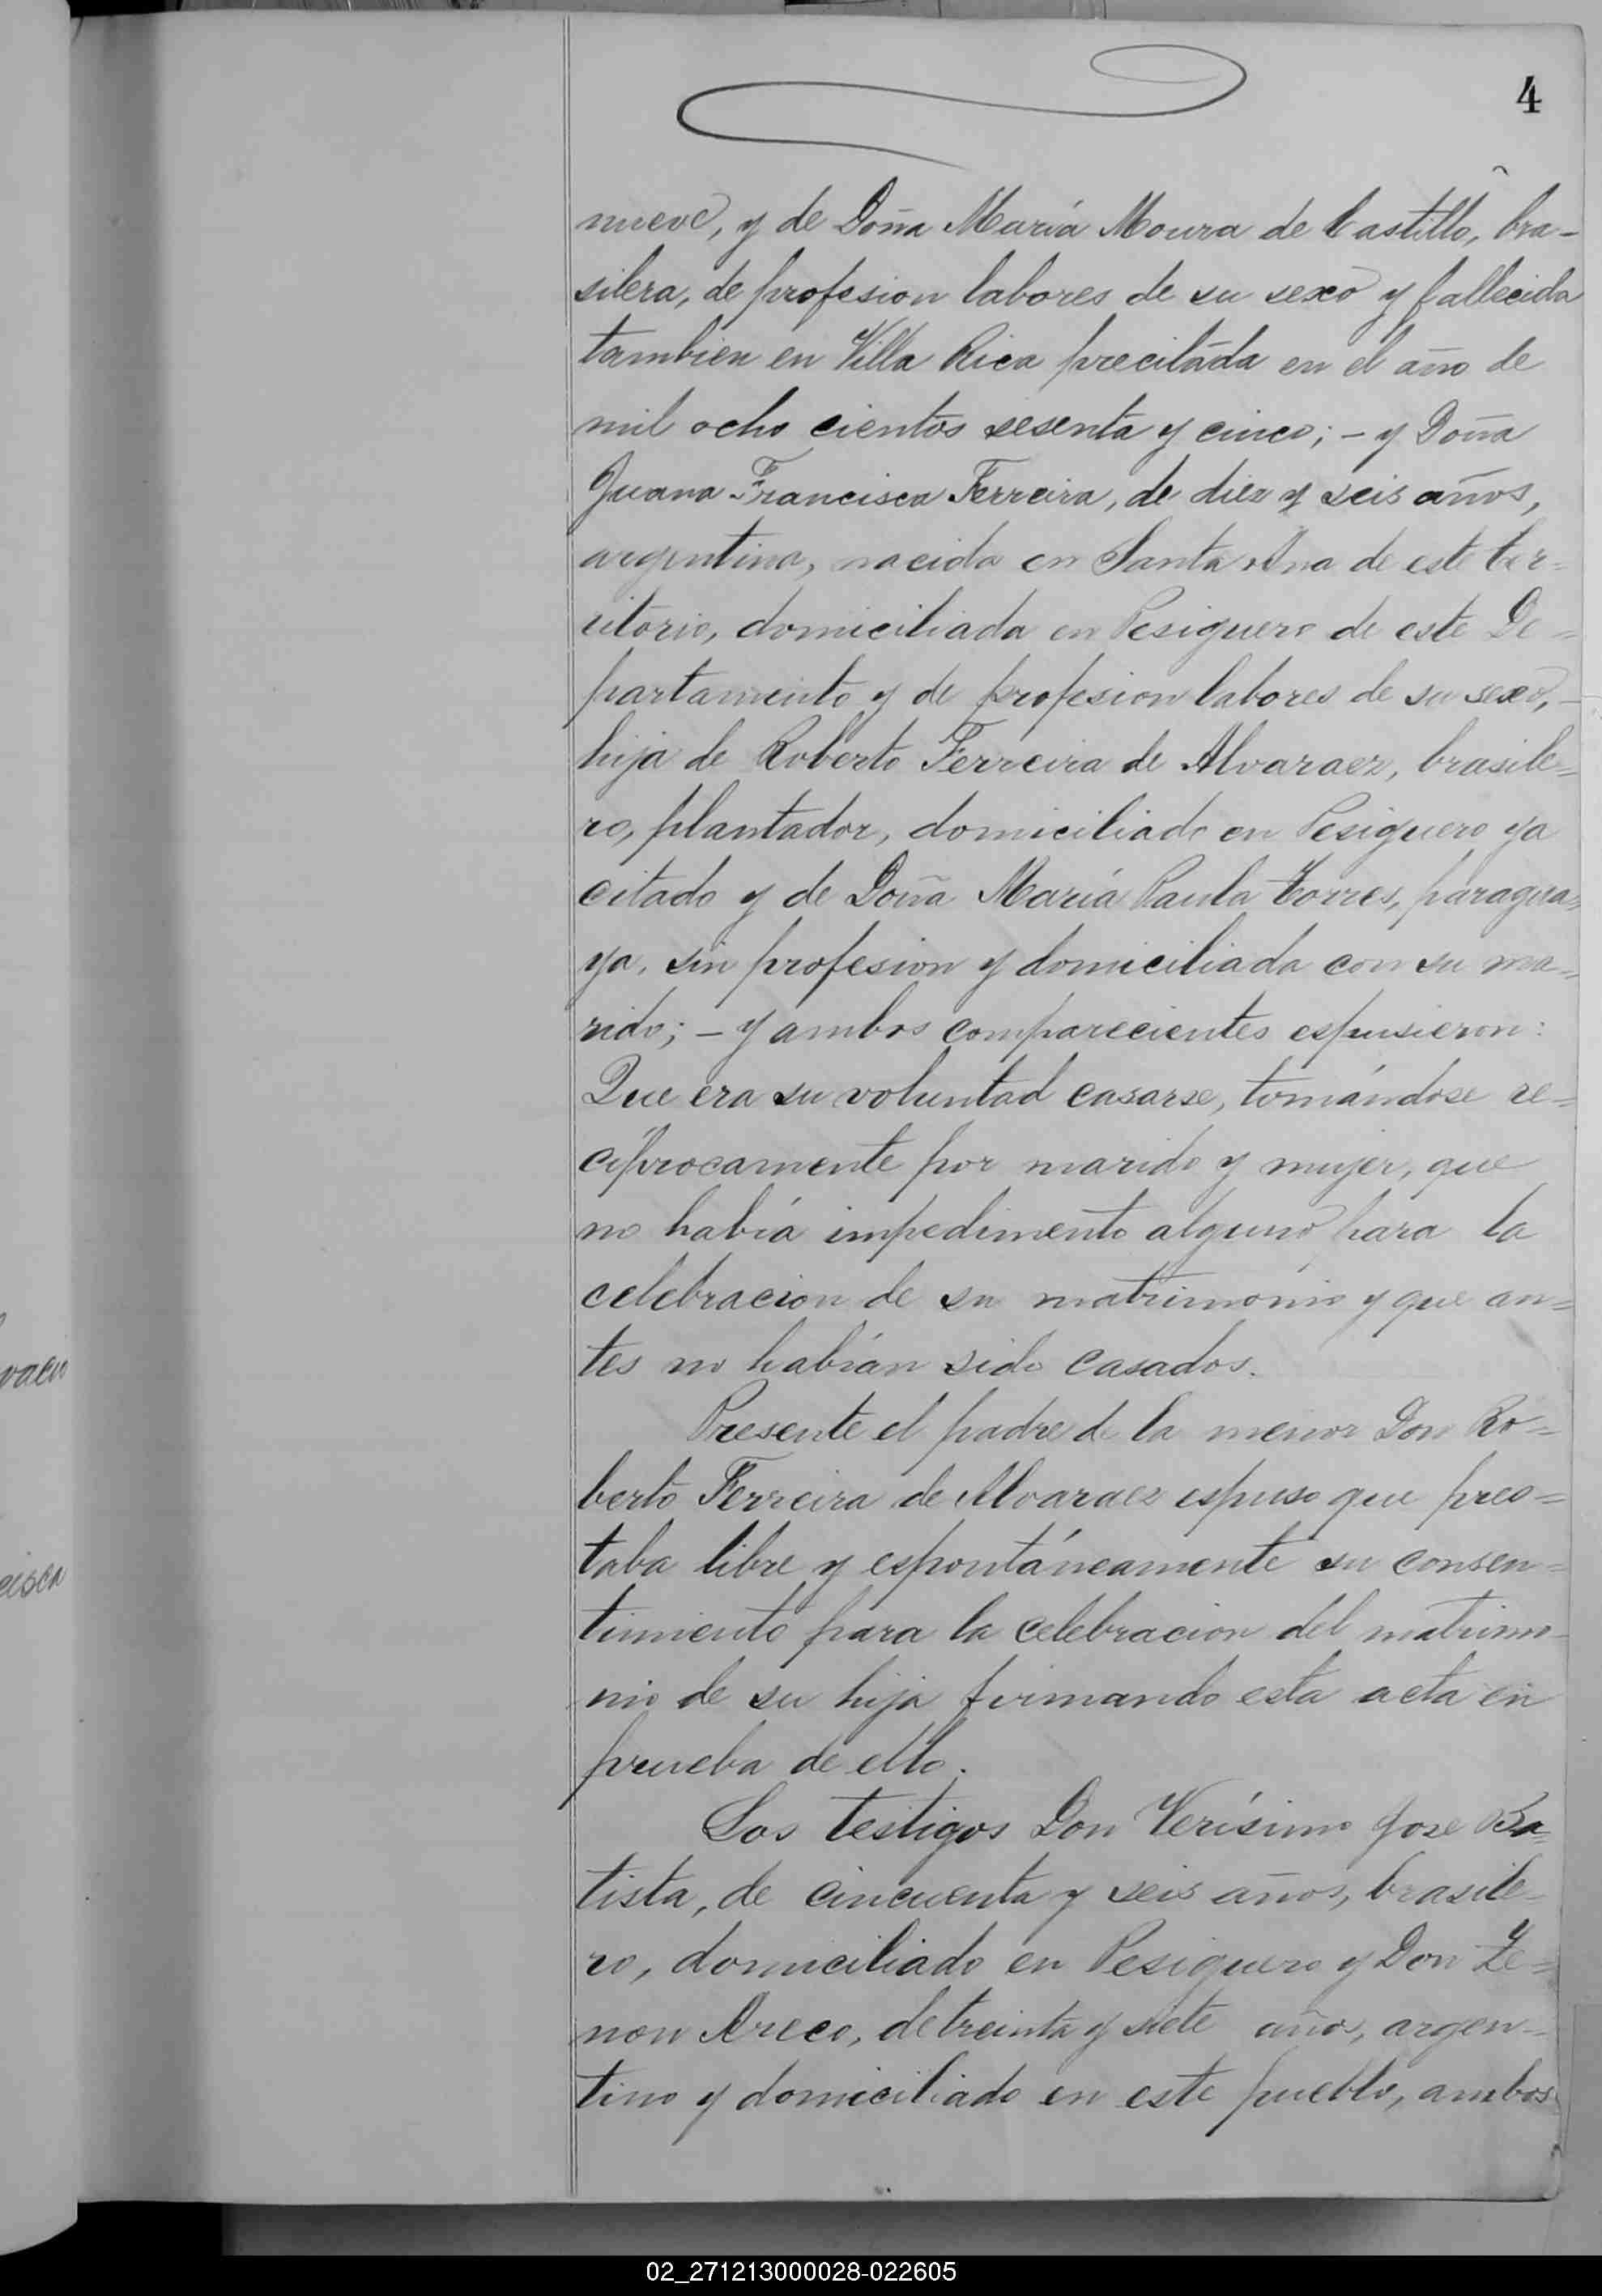 4
nueve, y de Doña María Moura de Castillo, bra-
silera, de profesion labores de su sexo y fallecida
tambien en Villa Rica precitada en el año de
mil ocho cientos sesenta y cinco; - y Doña
Juana Francisca Ferreira, de diez y seis años,
argentina, nacida en Santa Ana de este ter=
ritorio, domiciliada en Pesiguero de este De=
partamento y de profesion labores de su sexo, -
hija de Roberto Ferreira de Alvaraez, brasile=
ro, plantador, domiciliado en Pesiguero ya
citado y de Doña María Paula Torres, paragua=
ya, sin profesion y domiciliada con su ma=
rido; - y ambos comparecientes espusieron:
Que era su voluntad casarse, tomándose re=
cíprocamente por marido y mujer, que
no había impedimento alguno para la
celebracion de su matrimonio y que an=
tes no habían sido casados.
Presente el padre de la menor Don Ro=
berto Ferreira de Alvaraez espuso que pres=
taba libre y espontáneamente su consen=
timiento para la celebracion del matrimo-
nio de su hija firmando esta acta en
prueba de ello.
Los testigos Don Verísimo Jose Ba=
tista, de cincuenta y seis años, brasile-
ro, domiciliado en Pesiguero y Don Ze=
non Areco, de treinta y siete años, argen-
tino y domiciliado en este pueblo, ambos
02_271213000028-022605